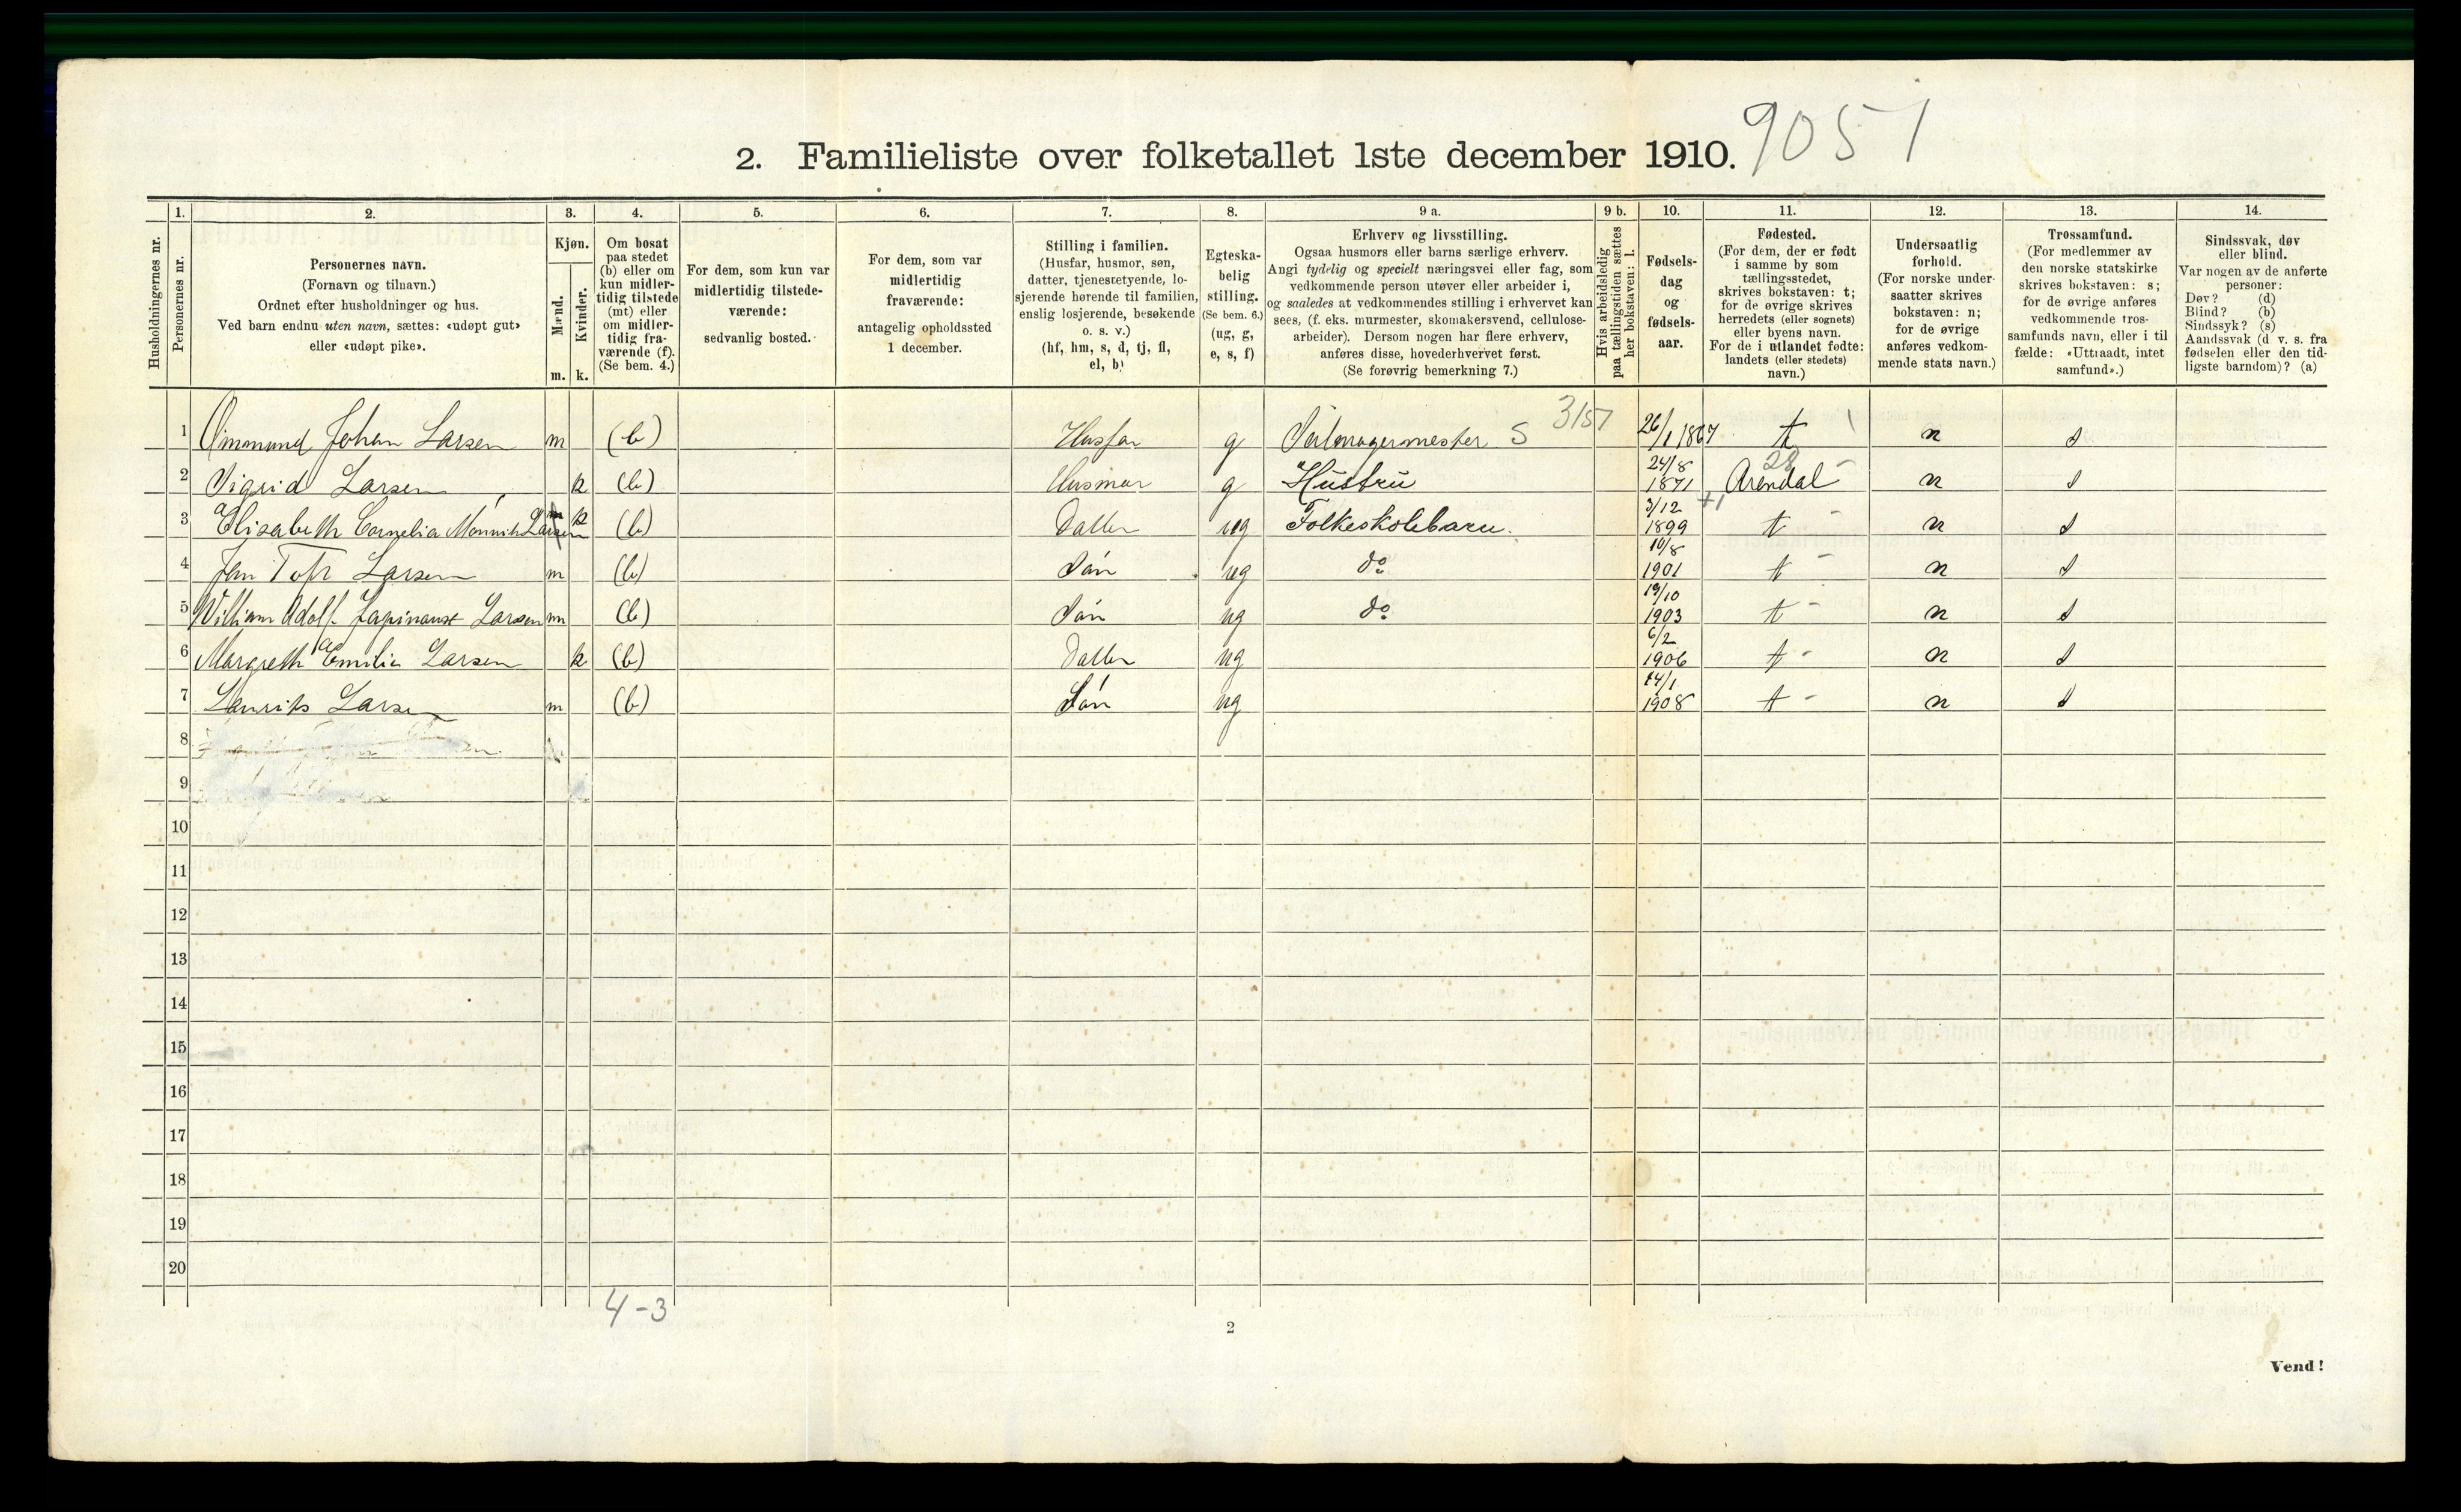 2. Familieliste over folketallet 1ste december 1910.
9051
1. 2. 3. 4. 5. 6. 7. 8. 9 a. 9 b. 10. 11. 12. 13. 14.
Husholdningernes nr.
Personernes nr.
Personernes navn.
(Fornavn og tilnavn.)
Ordnet efter husholdninger og hus.
Ved barn endnu uten navn, sættes: «udøpt gut»
eller «udøpt pike».
Kjøn.
Mænd.
Kvinder.
m. k.
Om bosat
paa stedet
(b) eller om
kun midler-
tidig tilstede
(mt) eller
om midler-
tidig fra-
værende (f).
(Se bem. 4.)
For dem, som kun var
midlertidig tilstede-
værende:
sedvanlig bosted.
For dem, som var
midlertidig
fraværende:
antagelig opholdssted
1 december.
Stilling i familien.
(Husfar, husmor, søn,
datter, tjenestetyende, lo-
sjerende hørende til familien,
enslig losjerende, besøkende
o. s. v.)
(hf, hm, s, d, tj, fl,
el, b)
Egteska-
belig
stilling.
(Se bem. 6.)
(ug, g,
e, s, f)
Erhverv og livsstilling.
Ogsaa husmors eller barns særlige erhverv.
Angi tydelig og specielt næringsvei eller fag, som
vedkommende person utøver eller arbeider i,
og saaledes at vedkommendes stilling i erhvervet kan
sees, (f. eks. murmester, skomakersvend, cellulose-
arbeider). Dersom nogen har flere erhverv,
anføres disse, hovederhvervet først.
(Se forøvrig bemerkning 7.)
Hvis arbeidsledig
paa tællingstiden sættes
her bokstaven: l.
Fødsels-
dag
og
fødsels-
aar.
Fødested.
(For dem, der er født
i samme by som
tællingsstedet,
skrives bokstaven: t;
for de øvrige skrives
herredets (eller sognets)
eller byens navn.
For de i utlandet fødte:
landets (eller stedets)
navn.)
Undersaatlig
forhold.
(For norske under-
saatter skrives
bokstaven: n;
for de øvrige
anføres vedkom-
mende stats navn.)
Trossamfund.
(For medlemmer av
den norske statskirke
skrives bokstaven: s;
for de øvrige anføres
vedkommende tros-
samfunds navn, eller i til
fælde: «Uttraadt, intet
samfund».)
Sindssvak, døv
eller blind.
Var nogen av de anførte
personer:
Døv? (d)
Blind? (b)
Sindssyk? (s)
Aandssvak (d v. s. fra
fødselen eller den tid-
ligste barndom)? (a)
3157
1 Johan Larsen m (b) Husfar g Seilmagermester S 26/1 1867 t n s
2 Sigrid Larsen k (b) Husmor g Hustru 24/8 1871 28 Arendal n s
3 Elisabeth Cornelia Larsen k (b) Datter ug Folkeskolebarn. 3/12 1899 +1 t n s
4 Larsen m (b) Søn ug do 10/8 1901 t n s
5 William Adolf Larsen m (b) Søn ug do 19/10 1903 t n s
6 Margreth Emilie Larsen k (b) Datter ug 6/2 1906 t n s
7 Lauritz Larsen m (b) Søn ug 14/1 1908 t n s
8
9
10
11
12
13
14
15
16
17
18
19
20
4-3
2
Vend!